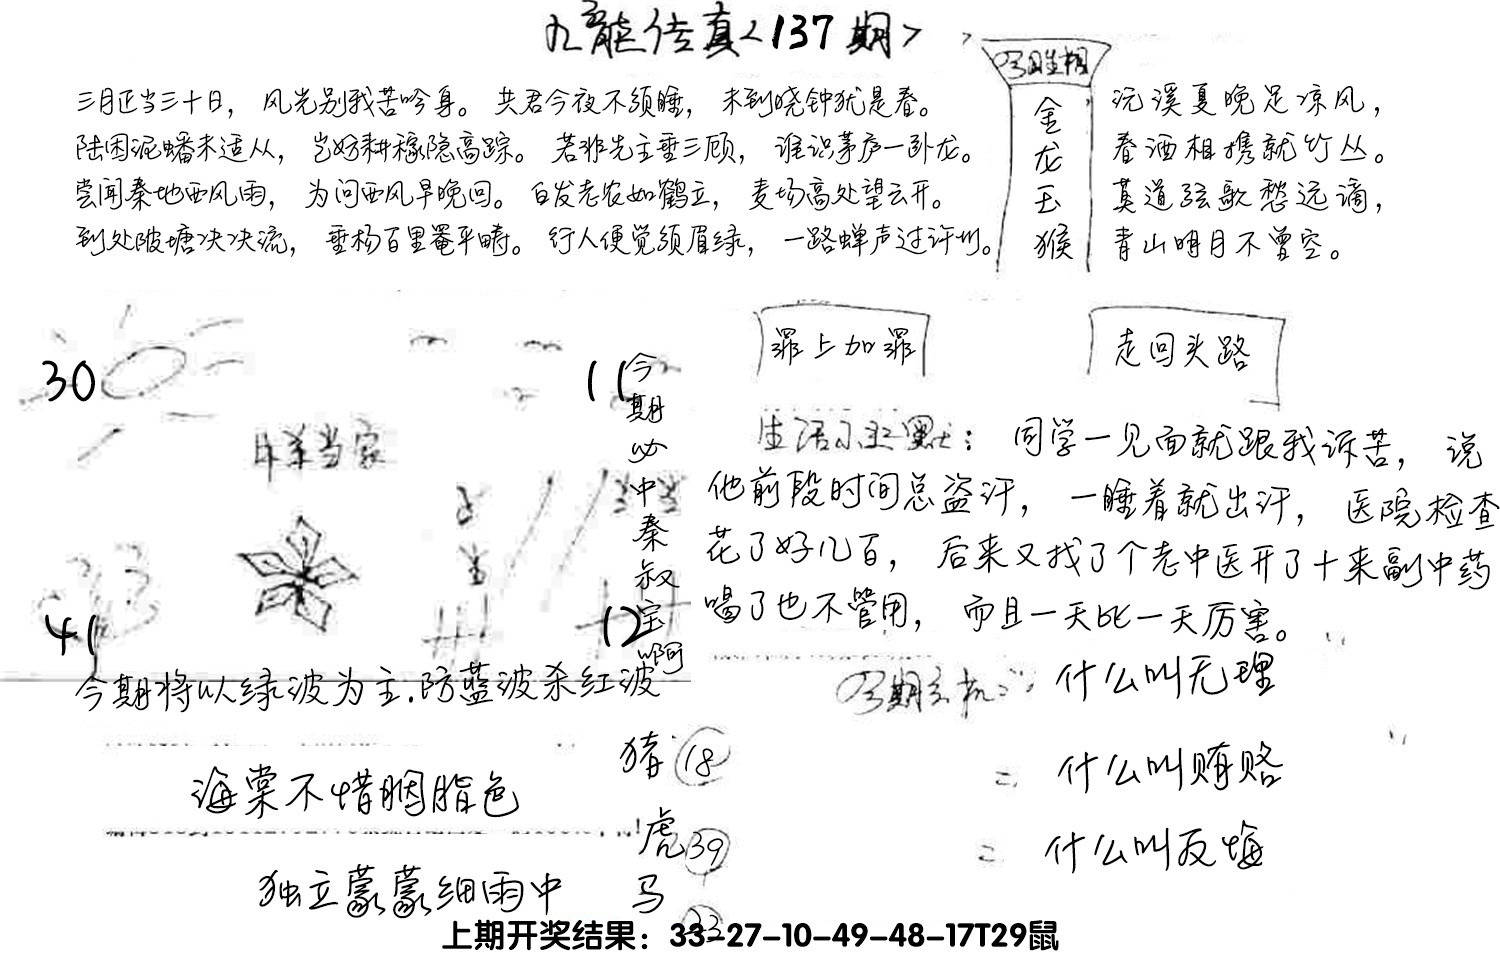 九龙传真<137期>
三月正当三十日，风光别我苦吟身。共君今夜不须睡，未到晓钟犹是春。
陆困泥蟠未适从，岂妨耕稼隐高踪。若非先主垂三顾，谁识茅庐一卧龙。
尝闻秦地西风雨，为问西风早晚回。白发老农如鹤立，麦场高处望云开。
到处陂塘决决流，垂杨百里罨平畴。行人便觉须眉绿，一路蝉声过许州。
金龙玉猴
沅溪夏晚足凉风，
春酒相携就竹丛。
莫道弦歌愁远谪，
青山明月不曾空。
30
11
41
12
今期必中秦叔宝啊
今期将以绿波为主.防蓝波杀红波
海棠不惜胭脂色
独立蒙蒙细雨中
猪 18
虎 39
马
罪上加罪
走回头路
同学一见面就跟我诉苦，说
他前段时间总盗汗，一睡着就出汗，医院检查
花了好几百，后来又找了个老中医开了十来副中药
喝了也不管用，而且一天比一天厉害。
什么叫无理
什么叫贿赂
什么叫反悔
上期开奖结果：33-27-10-49-48-17T29鼠